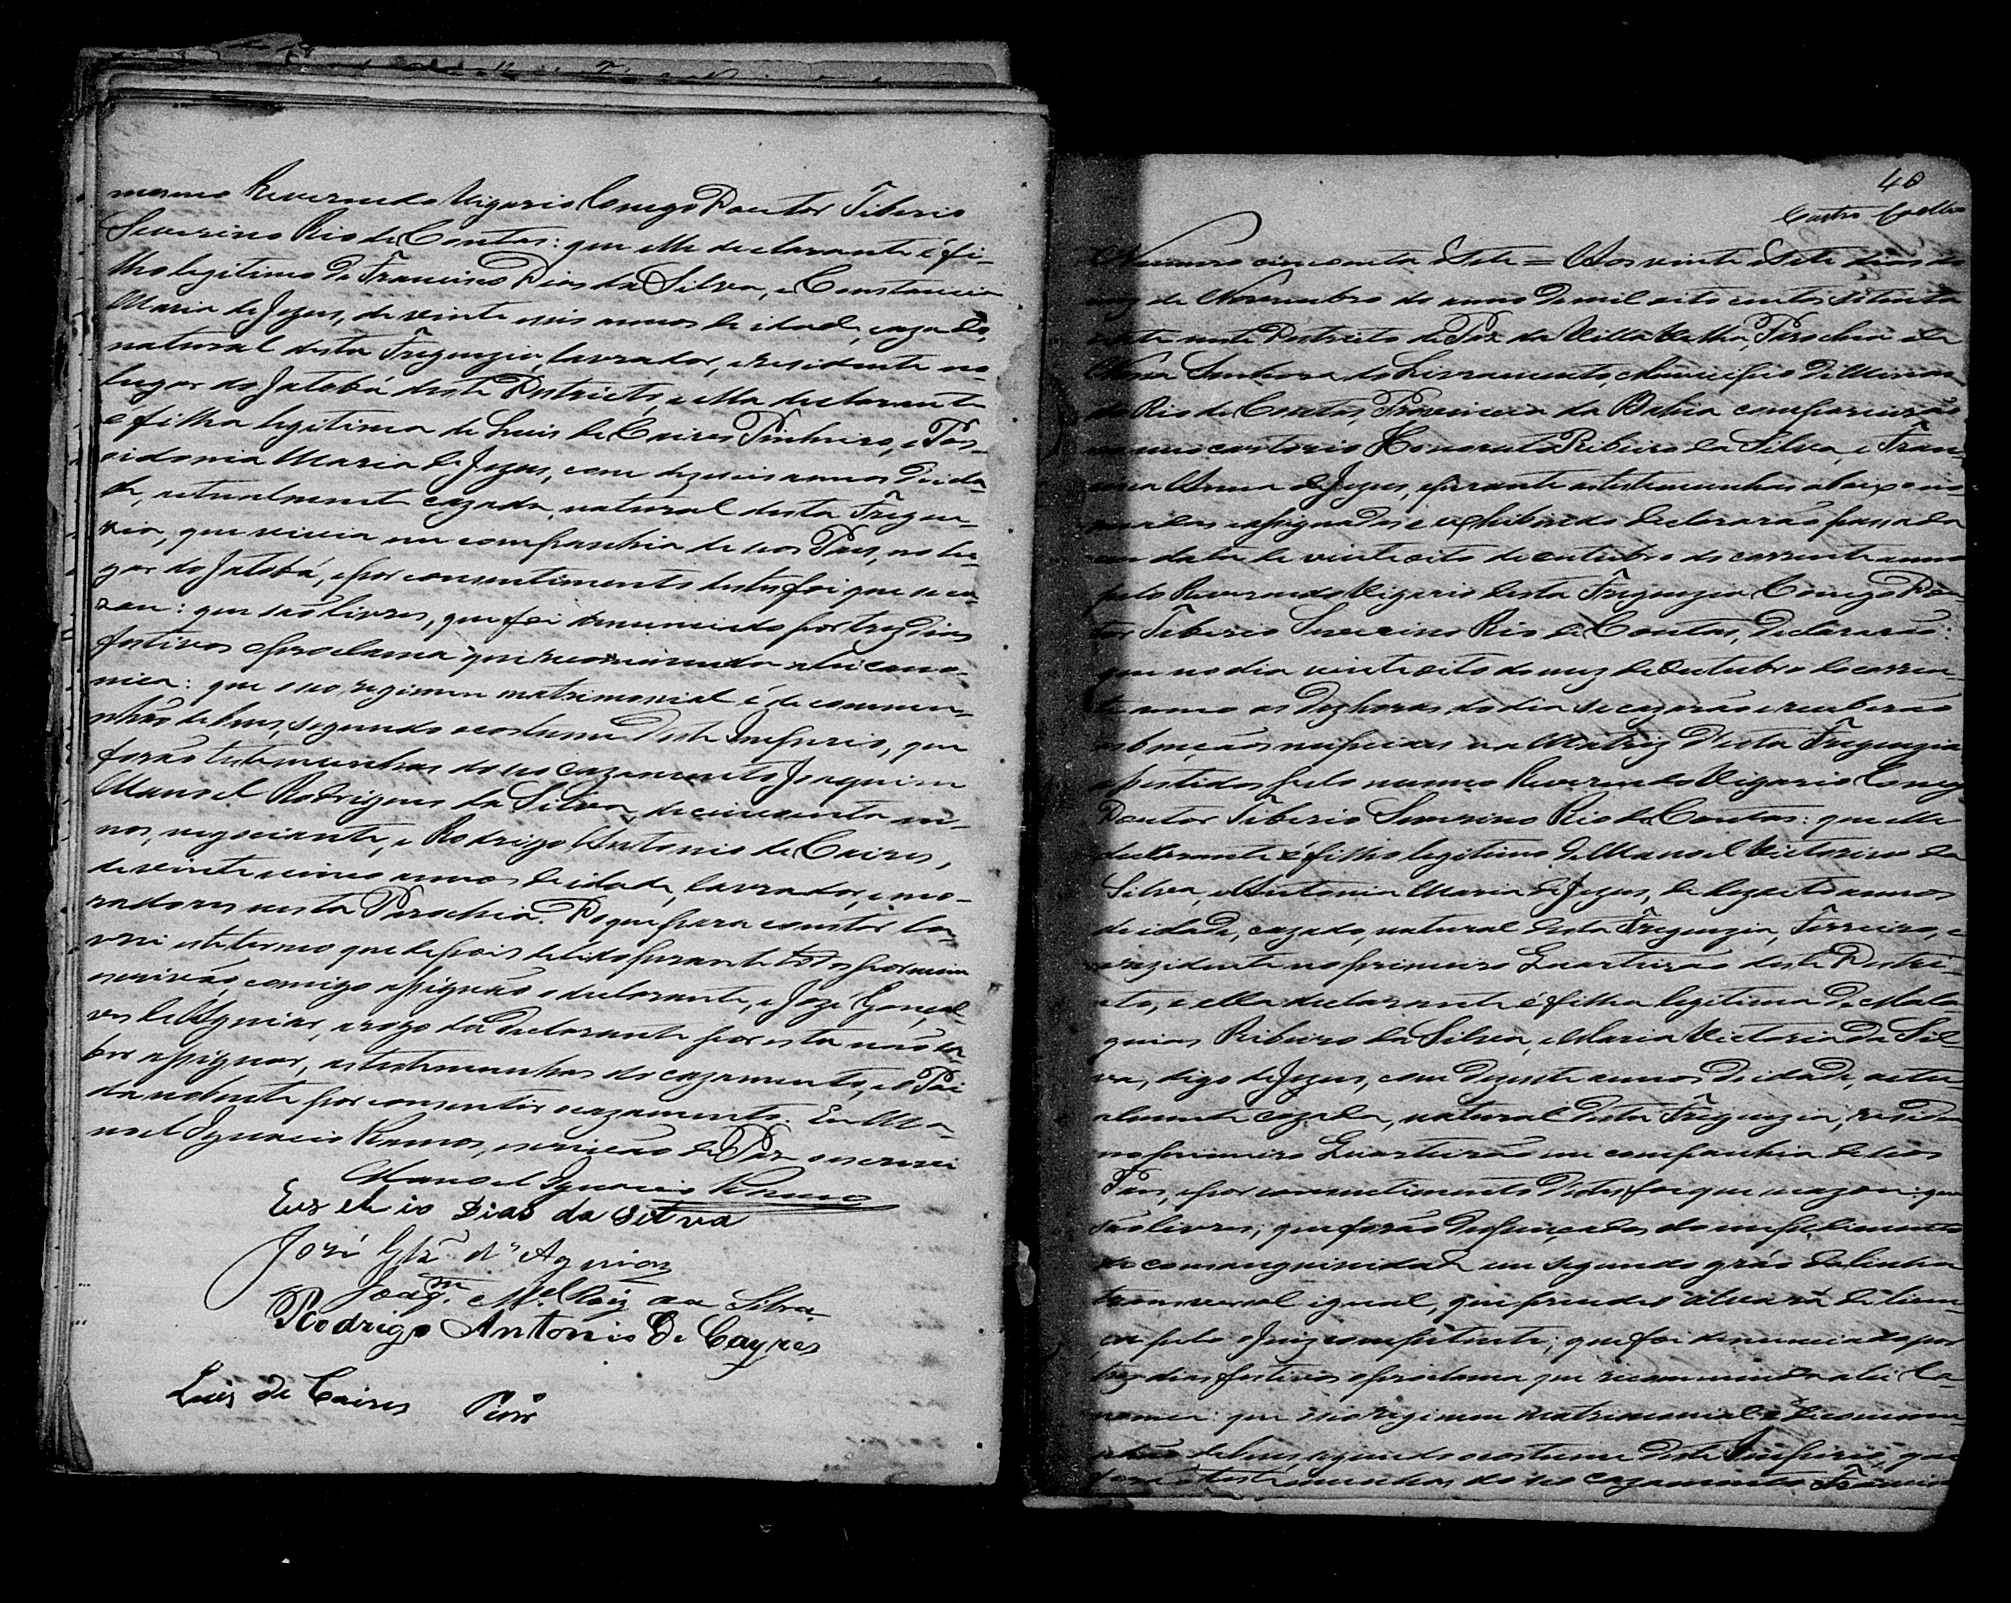 mesmo Reverendo Vigario Conego Doutor Tiberio
Severino Rio de Contas: que elle declarante é fi-
lho legitimo de Francisco Dias da Silva, e Constancia
Maria de Jezus, de vinte e seis annos de idade, cazado,
natural desta Freguezia, lavrador, e residente no
lugar do Jatobá deste Destricto, e ella declarante
é filha legitima de Luis de Caires Pinheiro, e Pos-
sidonia Maria de Jezus, com dezeseis annos de ida-
de, actualmente cazada, natural desta Fregue-
zia, que vivia em companhia de seos Pais, no lu-
gar do Jatobá, e por consentimento destes foi que se ca-
zou: que são livres, que foi denunciado por trez dias
festivos o proclama que recommenda a lei cano-
nica: que o seo regimen matrimonial é de commu-
nhão de bens, segundo o costume deste Imperio, que
forão testemunhas do seo cazamento Joaquim
Manoel Rodrigues da Silva, de cincoenta an-
nos, negociante, e Rodrigo Antonio de Caires,
de vinte e cinco annos de idade, lavrador, e mo-
radores nesta Parochia. Do que para constar la-
vrei este termo que depois de lido perante todos por mim
escrivão, comigo assignão o declarante, e Joze Gonçal-
ves de Aguiar, a rogo da declarante por esta não sa-
ber assignar, as testemunhas do cazamento, e o Pai
da nubente por consentir o cazamento. Eu Ma-
noel Ignacio Ramos, escrivão de Paz o escrevi
Manoel Ignacio Ramos
Euzebio Dias da Silva
José Glz d'Aguiar
Joaqm Mel Roiz da Silva
Rodrigo Antonio De Cayres
Luis de Caires Pinro
40
Castro Coelho
Numero cincoenta e sete = Aos vinte e sete dias do
mez de Novembro do anno de mil oito centos setenta
e sete neste Destricto de Paz da Villa Velha, Parochia de
Nossa Senhora do Livramento, Municipio de Minas
do Rio de Contas, Provincia da Bahia comparecerão
no meo cartorio Honorato Ribeiro da Silva, e Fran-
Anna de Jezus, e perante as testemunhas abaixo no-
meadas e assignadas e exhibindo declararão passada
em data de vinte oito de outubro do corrente anno
pelo Reverendo Vigario desta Freguezia Conego Dou-
tor Tiberio Severino Rio de Contas, declararão:
que no dia vinte oito do mez de Outubro do corren-
te anno as dez horas do dia se cazarão e receberão
as bençãos nupciais na Matriz d'esta Freguezia
assistidos pelo mesmo Reverendo Vigario Conego
Doutor Tiberio Severino Rio de Contas: que elle
declarante é filho legitimo de Manoel Victorino da
Silva, e Antonia Maria de Jezus, de dezoito annos
de idade, cazado, natural desta Freguezia, Ferreiro, e
rezidente no primeiro Quarteirão deste Destri-
cto, e ella declarante é filha legitima de Mala-
quias Ribeiro da Silva, e Maria Victoria da Sil-
va, digo de Jezus, com dezesete annos de idade, actu-
almente cazada, natural desta Freguezia, reside
no primeiro Quarteirão em companhia de seos
Pais, e por consentimento destes foi que se cazou: que
são livres, que forão dispensados do impedimento
de consanguinidade em segundo gráo de linha
transversal igual, que precedeo alvará de licen-
ça pelo Juiz competente; que foi denunciado por
trez dias festivos o proclama que recommenda a lei Ca-
nonica: que o seo regimen matrimonial é de commu-
nhão de bens, segundo o costume deste Imperio, que
forão testemunhas do seo cazamento Francis